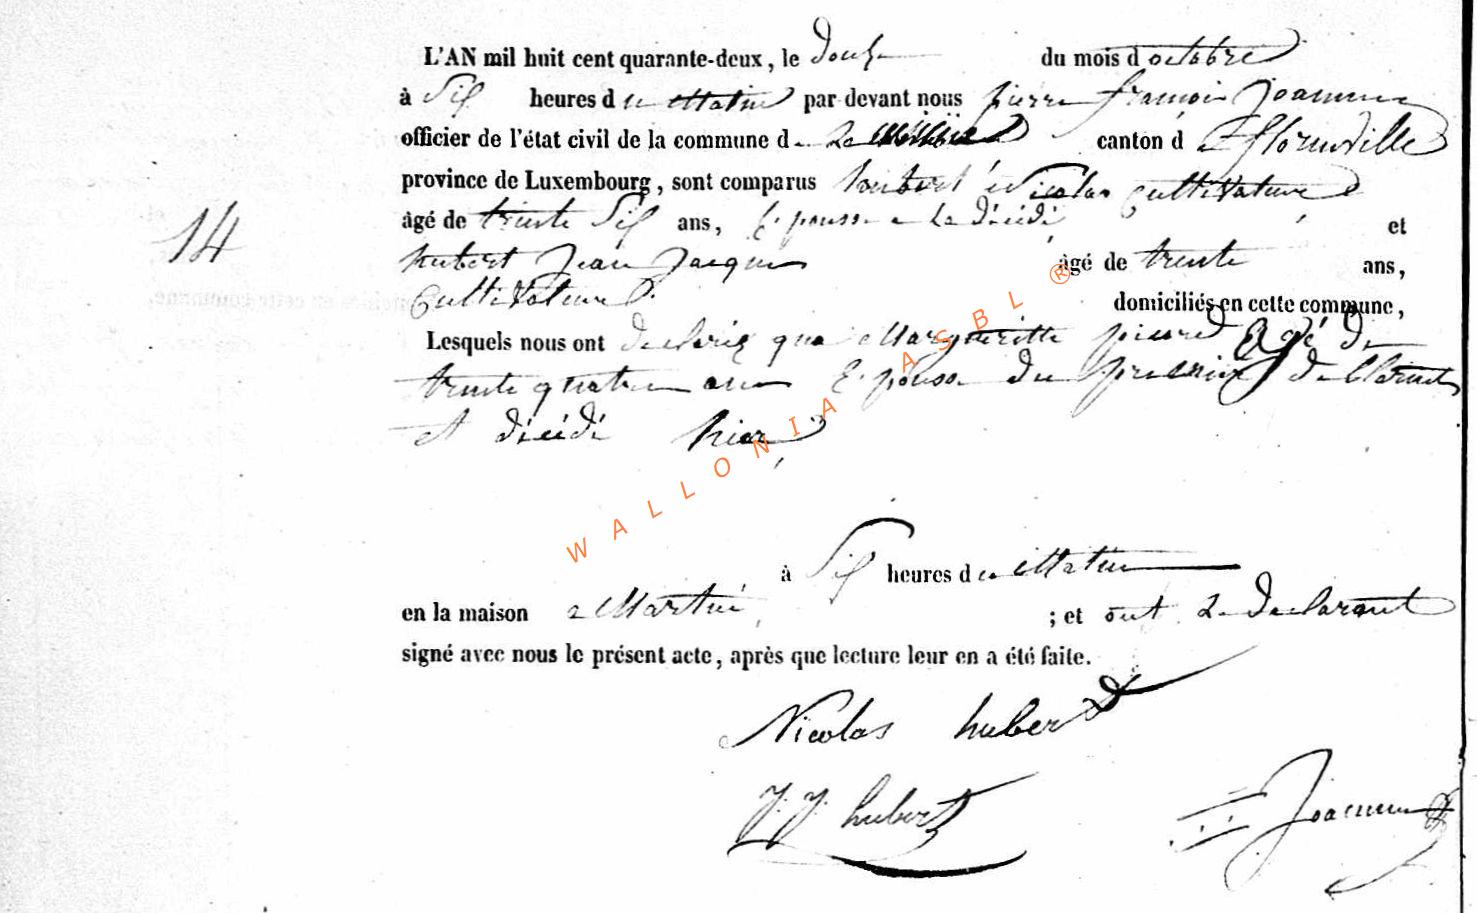 L'AN mil huit cent quarante-deux, le douze du mois d octobre
à Six heures d u Matin par devant nous pierre françois Joannes
officier de l'état civil de la commune d canton d e florenville
province de Luxembourg, sont comparus hubert Nicolas Cultivateure
14
âgé de trente Six ans, Epousse de la décédé et
hubert Jean Jacques âgé de trente ans,
Cultivateure domiciliés en cette commune,
Lesquels nous ont declarez que Margueritte pierred Agé de
trente quatre ans Epouse du premiere de Clarant
et décédé hier
à Six heures d u Matin
en la maison a Martué ; et ont Le declarant
signé avec nous le présent acte, après que lecture leur en a été faite.
Nicolas hubert
J. J. hubert
Joannes
WALLONIA ASBL ®